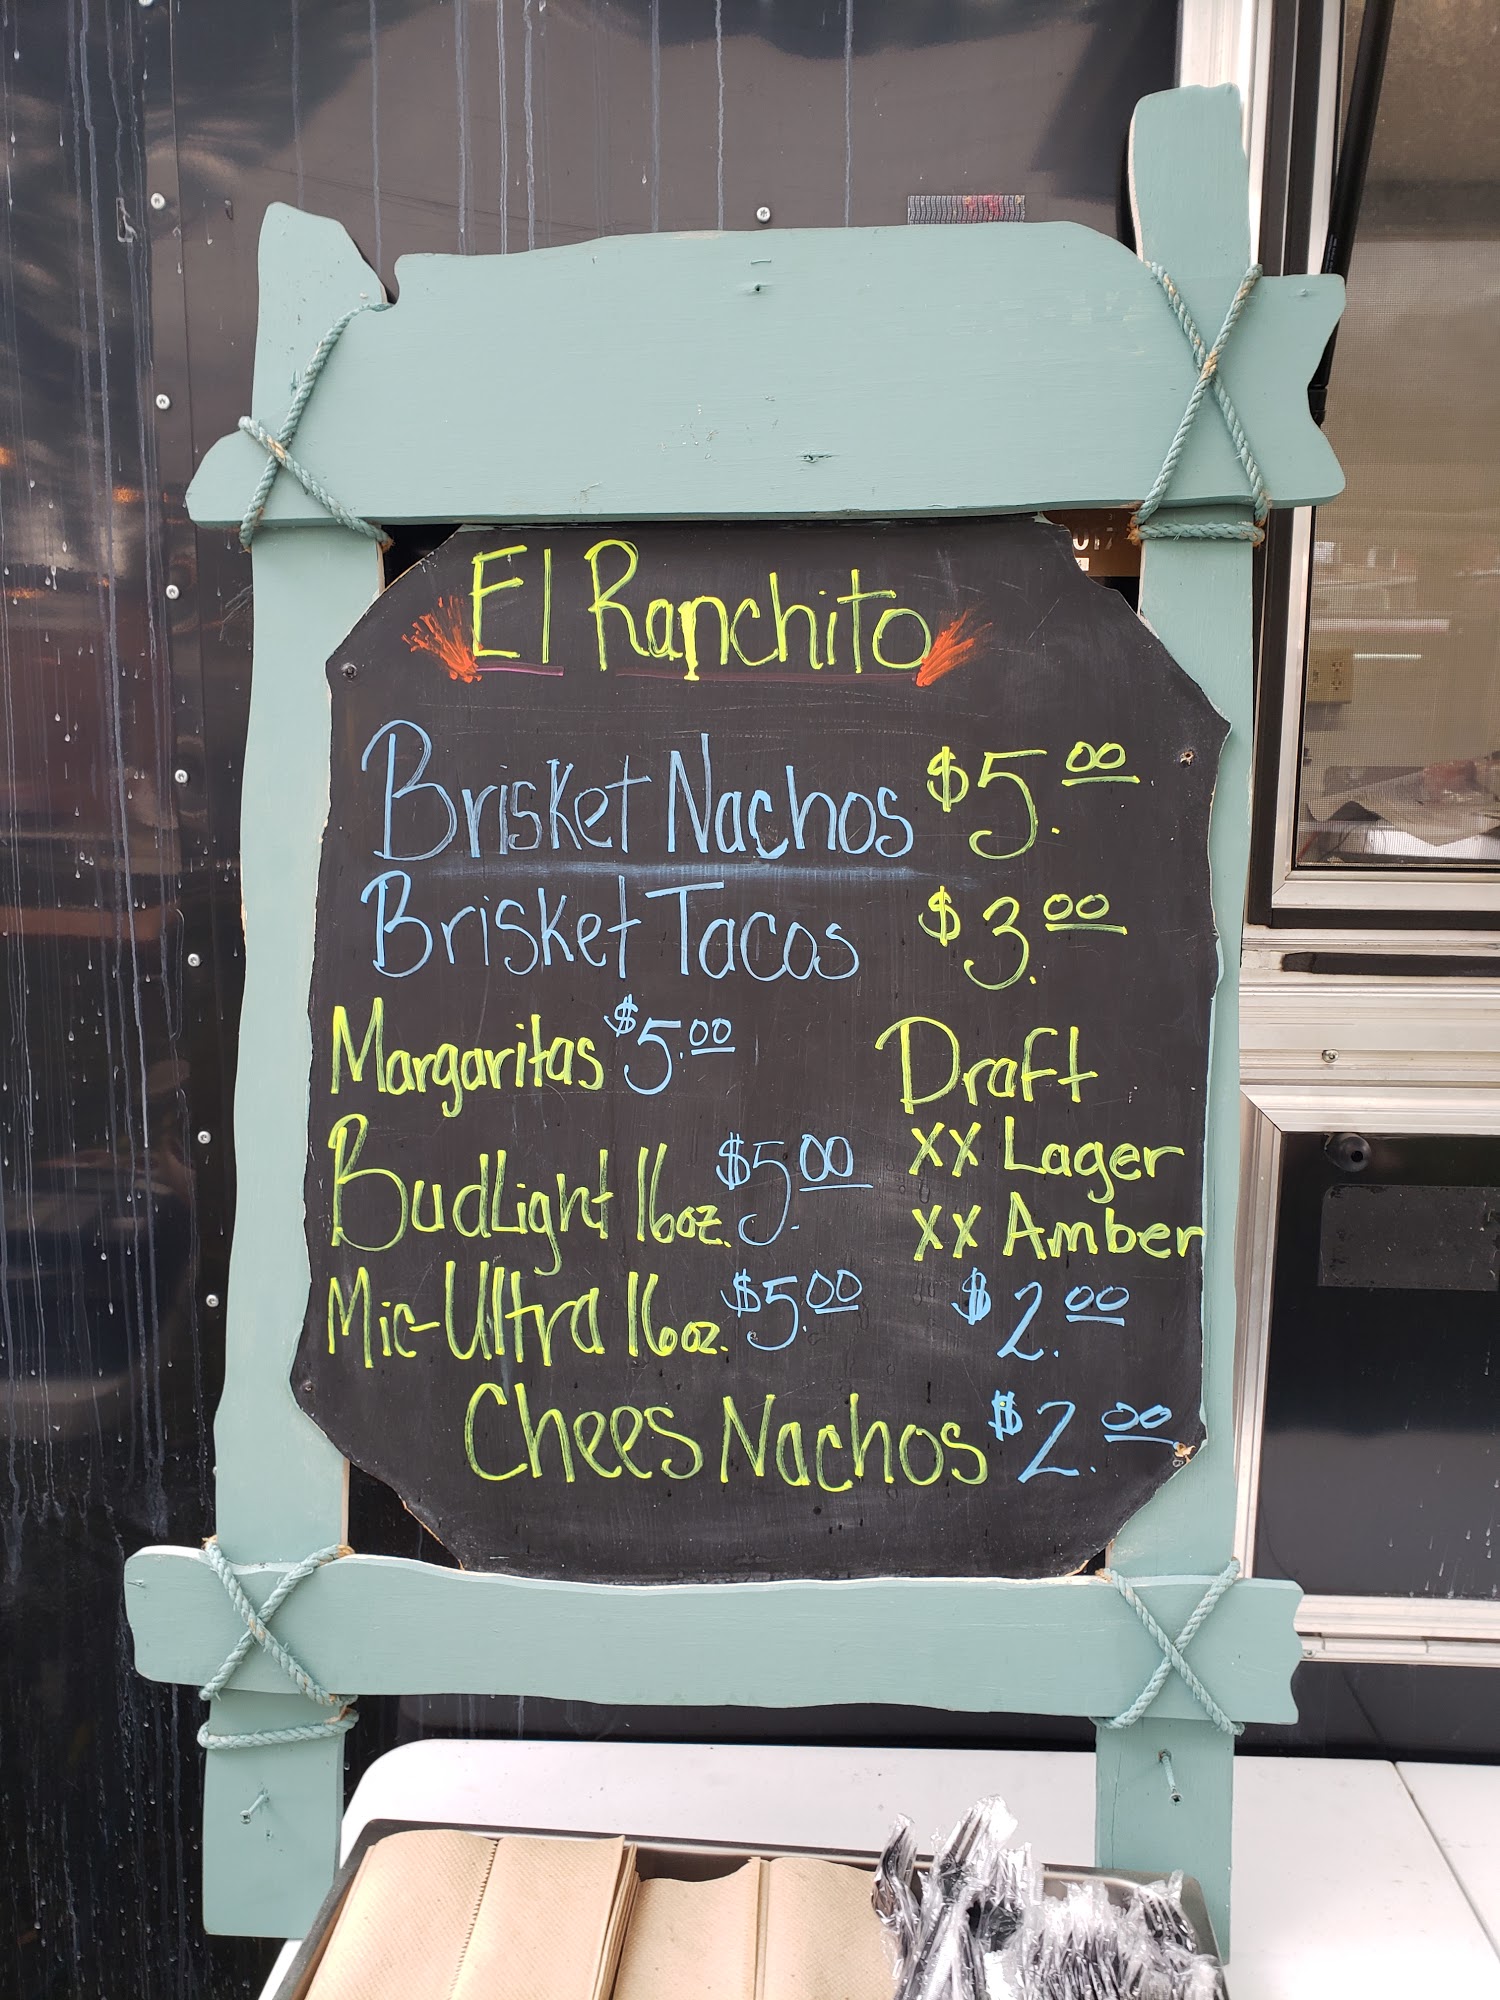 El Ranchito
Brisket Nachos $5.00
Brisket Tacos $3.00
Margaritas $5.00
BudLight 16oz. $5.00
Mic-Ultra 16oz. $5.00
Draft
XX Lager
XX Amber
$2.00
Chees Nachos $2.00